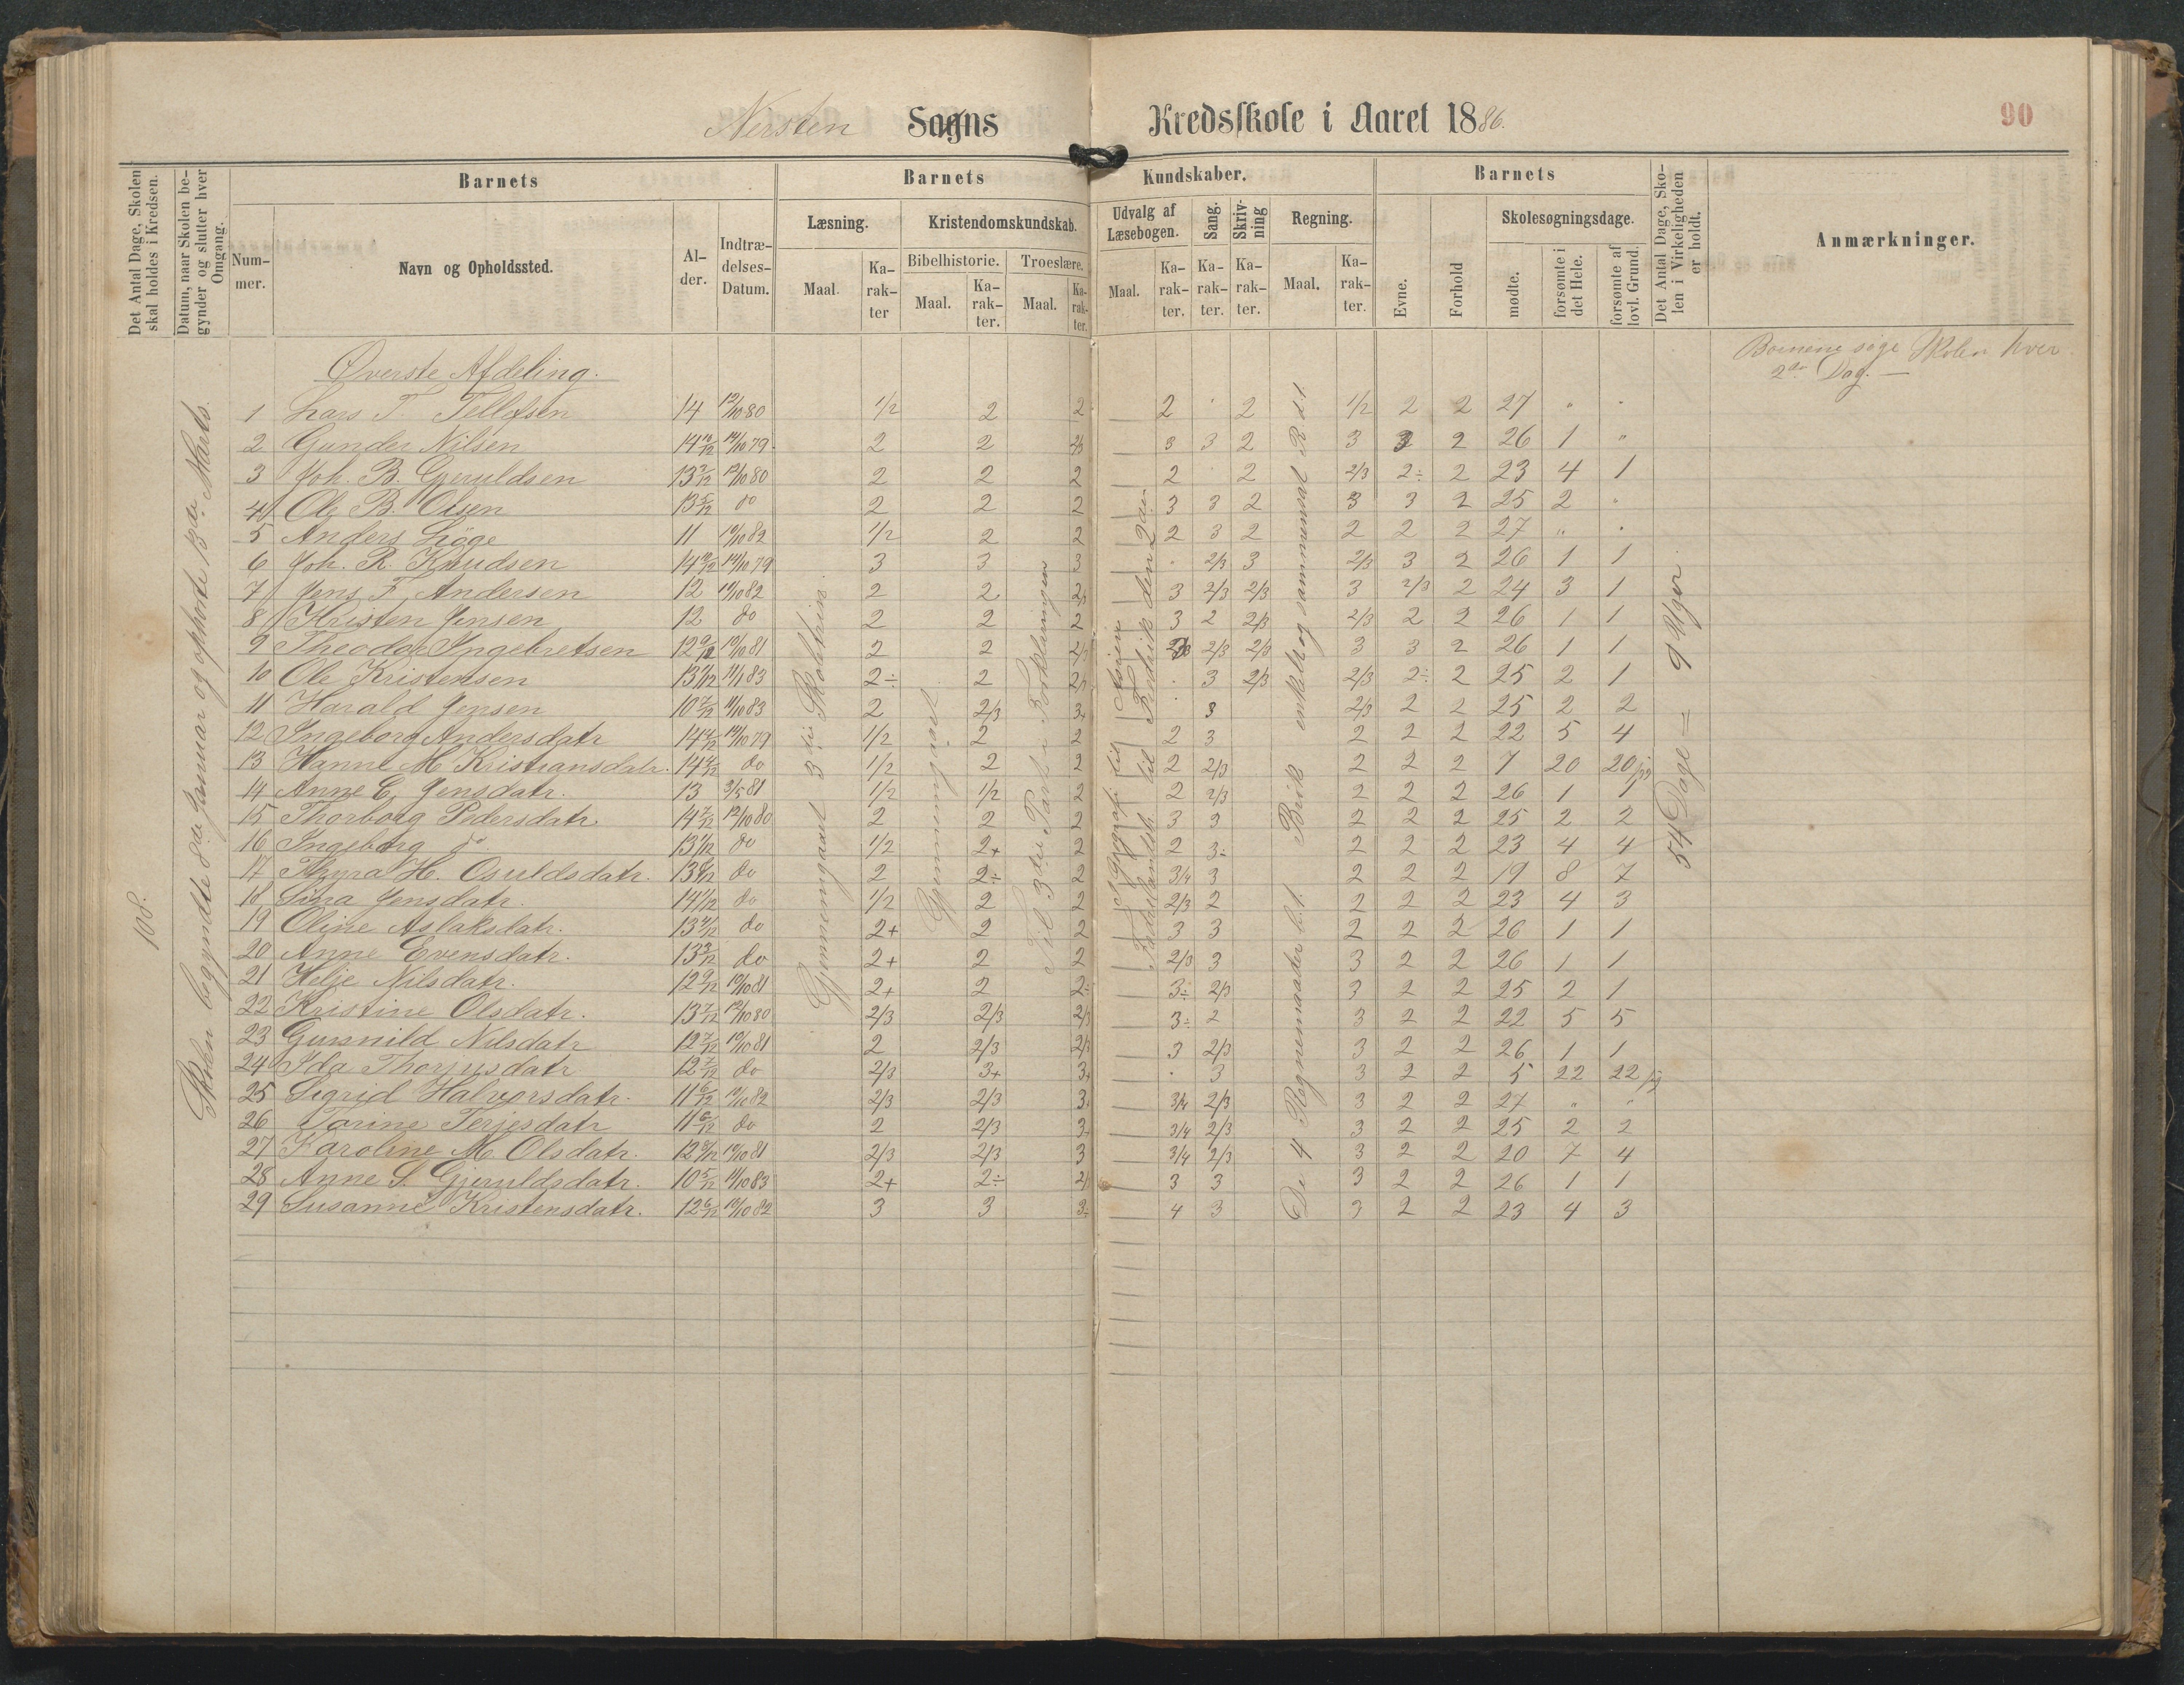 Nersten Sogns Kredsskole i Aaret 1886.
90
Det Antal Dage, Skolen skal holdes i Kredsen.
Datum, naar Skolen begynder og slutter hver Omgang.
Barnets
Nummer.
Navn og Opholdssted.
Alder.
Indtrædelses-Datum.
Barnets Kundskaber.
Læsning.
Maal.
Karakter
Kristendomskundskab.
Bibelhistorie.
Maal.
Karakter.
Troeslære.
Maal.
Karakter.
Udvalg af Læsebogen.
Maal.
Karakter.
Sang.
Karakter.
Skrivning
Karakter.
Regning.
Maal.
Karakter.
Barnets
Evne.
Forhold
Skolesøgningsdage.
mødte.
forsømte i det Hele.
forsømte af lovl. Grund.
Det Antal Dage, Skolen i Virkeligheden er holdt.
Anmærkninger.
108.
Skolen begyndte 8de Januar og ophørte 13de Marts.
Øverste Afdeling.
Børnene søge Skolen hver
2den Dag. —
Gjennemgaaet 3die Skoletrin.
Gjennemgaaet
Til 3die Part i Forklaringen
I Geografi til Asien
Fædrelandsh. til Fredrik den 2den
De 4 Regnemaader i h. t. Brøk enkelt og sammensat R. d. t.
54 Dage = 9 Uger.
1 Lars T. Tellefsen 14 12/10 80 1/2 2 2 2 " 2 1/2 2 2 27 " "
2 Gunder Nilsen 14 10/12 14/10 79 2 2 2/3 3 3 2 3 3 2 26 1 "
3 Joh. B. Gjeruldsen 13 7/12 12/10 80 2 2 2 2 2 2/3 2÷ 2 23 4 1
4 Ole B. Olsen 13 5/12 do 2 2 2 3 3 2 3 3 2 25 2 "
5 Anders Löge 11 10/10 82 1/2 2 2 2 3 2 2 2 2 27 " "
6 Joh. R. Knudsen 14 10/12 14/10 79 3 3 3 " 2/3 3 2/3 3 2 26 1 1
7 Jens F. Andersen 12 10/10 82 2 2 2/3 3 2/3 2/3 3 2/3 2 24 3 1
8 Kristen Jensen 12 do 2 2 2 3 2 2/3 2/3 2 2 26 1 1
9 Theodor Ingebretsen 12 9/12 10/10 81 2 2 2/3 2/3 2/3 2/3 3 3 2 26 1 1
10 Ole Kristensen 13 11/12 11/1 83 2÷ 2 2/3 " 3 2/3 2/3 2÷ 2 25 2 1
11 Harald Jensen 10 7/12 11/10 83 2 2/3 3+ " 3 2/3 2 2 25 2 2
12 Ingeborg Andersdatr 14 4/12 14/10 79 1/2 2 2 2 3 2 2 2 22 5 4
13 Hanne M Kristiansdatr. 14 4/12 do 1/2 2 2 2 2/3 2 2 2 7 20 20
14 Anne E. Jensdatr. 13 3/5 81 1/2 1/2 2 2 2/3 2 2 2 26 1 1
15 Thorborg Pedersdatr 14 7/12 12/10 80 2 2 2 3 3 2 2 2 25 2 2
16 Ingeborg do 13 1/12 do 1/2 2+ 2 2 3÷ 2 2 2 23 4 4
17 Thyra H. Osuldsdatr. 13 8/12 do 2 2÷ 2 3/4 3 2 2 2 19 8 7
18 Sina Jensdatr. 14 1/12 do 1/2 2 2 2/3 2 2 2 2 23 4 3
19 Oline Aslaksdatr. 13 4/12 do 2+ 2 2 3 3 2 2 2 26 1 1
20 Anne Evensdatr. 13 3/12 do 2+ 2 2 2/3 3 3 2 2 26 1 1
21 Helje Nilsdatr. 12 9/12 10/10 81 2+ 2 2÷ 3÷ 2/3 3 2 2 25 2 1
22 Kristine Olsdatr. 13 7/12 12/10 80 2/3 2/3 2/3 3÷ 2 3 2 2 22 5 5
23 Gunnild Nilsdatr 12 7/12 10/10 81 2 2/3 2/3 3 2/3 3 2 2 26 1 1
24 Ida Thorjusdatr 12 7/12 do 2/3 3+ 3+ " 3 3 2 2 5 22 22
25 Sigrid Halvorsdatr. 11 6/12 10/10 82 2/3 2/3 3+ 3/4 2/3 3 2 2 27 " "
26 Tarine Terjesdatr 11 6/12 do 2 2/3 3 3/4 2/3 3 2 2 25 2 2
27 Karoline M. Olsdatr. 12 8/12 10/10 81 2/3 2/3 3 3/4 2/3 3 2 2 20 7 4
28 Anne S. Gjeruldsdatr. 10 5/12 11/10 83 2+ 2÷ 2/3 3 3 3 2 2 26 1 1
29 Susanne Kristensdatr. 12 6/12 10/10 82 3 3 3÷ 4 3 3 2 2 23 4 3